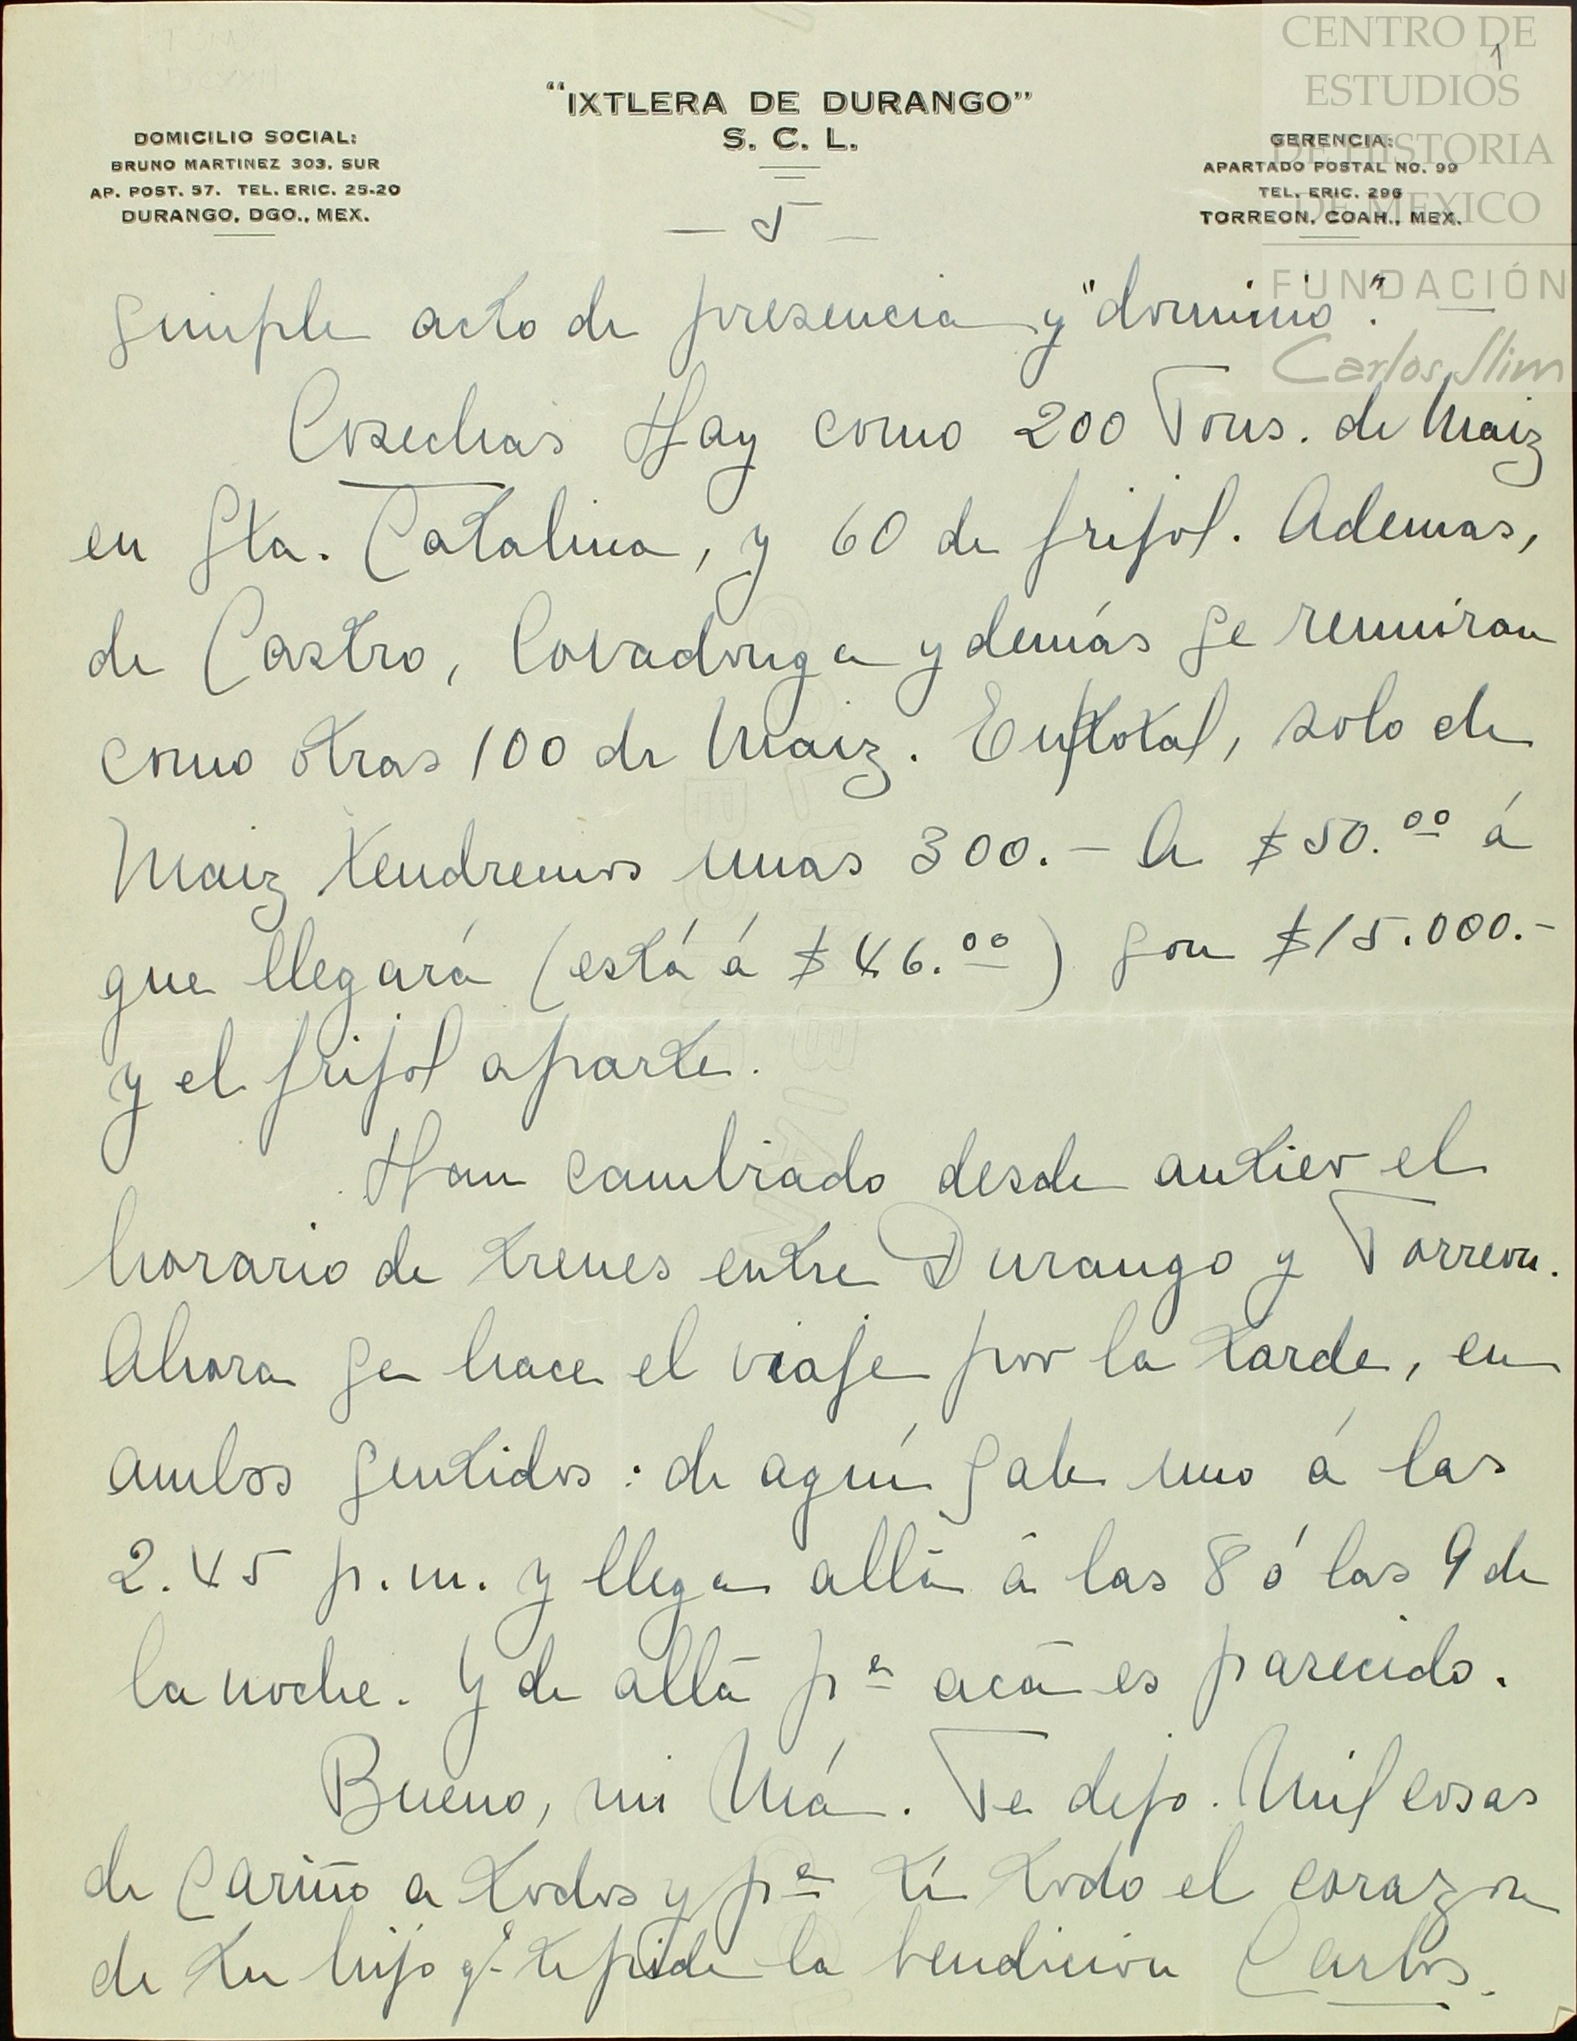 CENTRO DE
ESTUDIOS
DE HISTORIA
DE MEXICO
FUNDACIÓN
Carlos Slim
1
"IXTLERA DE DURANGO"
S. C. L.
DOMICILIO SOCIAL:
BRUNO MARTINEZ 303. SUR
AP. POST. 57. TEL. ERIC. 25-20
DURANGO, DGO., MEX.
GERENCIA:
APARTADO POSTAL NO. 99
TEL. ERIC. 296
TORREON, COAH., MEX.
— 5 —
simple acto de presencia y "dominio".
Cosechas Hay como 200 Tons. de Maiz
en Sta. Catalina, y 60 de frijol. Ademas,
de Castro, Covadonga y demás se reuniran
como otras 100 de Maiz. En total, solo de
Maiz tendremos unas 300.- A $50.00 á
que llegará (está á $46.00) son $15.000.-
y el frijol aparte.
Han cambiado desde antier el
horario de trenes entre Durango y Torreon.
Ahora se hace el viaje por la tarde, en
ambos sentidos: de aquí sale uno á las
2.45 p.m. y llega allá á las 8 ó las 9 de
la noche. Y de allá pa acá es parecido.
Bueno, mi Má. Te dejo. Mil cosas
de cariño a todos y pa tí todo el corazon
de tu hijo qe te pide la bendicion Carlos.